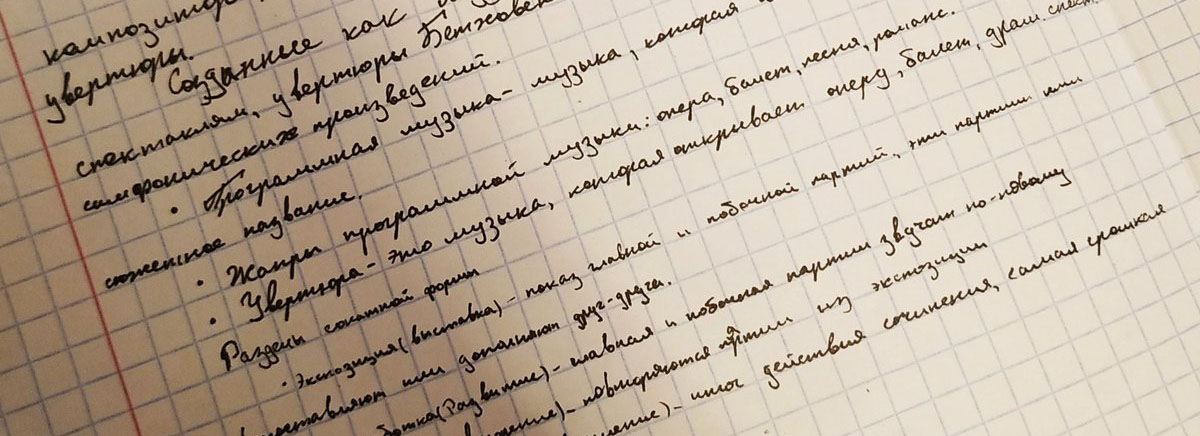 композитор
увертюры.
Созданные как
спектаклям, увертюры Бетховен
симфонических произведений.
• Программная музыка - музыка, которая
сюжетное название.
• Жанры программной музыки: опера, балет, песня, романс.
• Увертюра - это музыка, которая открывает оперу, балет, драм. спект
Разделы сонатной формы
• Экспозиция (выставка) - показ главной и побочной партий, эти партии или
ставляют или дополняют друг-друга.
ботка (Развитие) - главная и побочная партии звучат по-новому
повторяются партии из экспозиции
итог действия сочинения, самая громкая